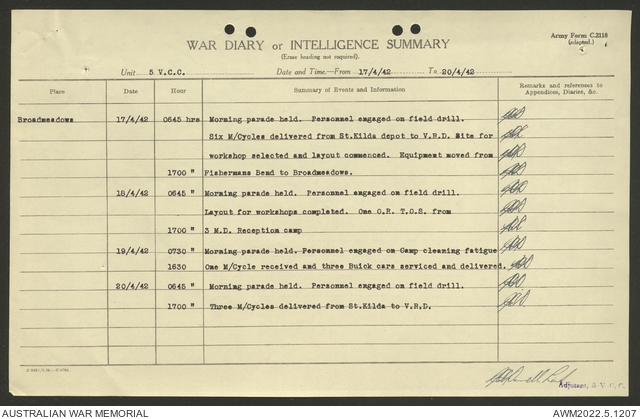 Army Form C.2118
(adapted.)
WAR DIARY or INTELLIGENCE SUMMARY
(Erase heading not required).
Unit 5 V.C.C. Date and Time.—From 17/4/42 To 20/4/42
Place Date Hour Summary of Events and Information Remarks and references to Appendices, Diaries, &c.
Broadmeadows 17/4/42 0645 hrs Morning parade held. Personnel engaged on field drill.
Six M/Cycles delivered from St.Kilda depot to V.R.D. Site for
workshop selected and layout commenced. Equipment moved from
1700 " Fishermans Bend to Broadmeadows.
18/4/42 0645 " Morning parade held. Personnel engaged on field drill.
Layout for workshops completed. One O.R. T.O.S. from
1700 " 3 M.D. Reception camp
19/4/42 0730 " Morning parade held. Personnel engaged on Camp cleaning fatigue
1630 One M/Cycle received and three Buick cars serviced and delivered.
20/4/42 0645 " Morning parade held. Personnel engaged on field drill.
1700 " Three M/Cycles delivered from St.Kilda to V.R.D.
Adjutant, 5 V.C.C.
AUSTRALIAN WAR MEMORIAL AWM2022.5.1207